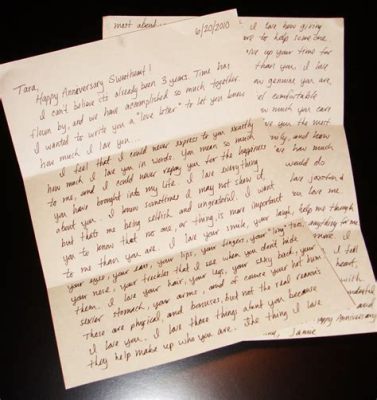 6/20/2010
Tara,
Happy Anniversary Sweetheart!
I can't believe its already been 3 years. Time has
flown by, and we have accomplished so much together.
I wanted to write you a "love letter" to let you know
how much I love you...
I feel that I could never express to you exactly
how much I love you in words. You mean so much
to me, and I could never repay you for the happiness
you have brought into my life. I love everything
about you. I know sometimes I may not show it,
but thats me being selfish and ungrateful. I want
you to know that no one, or thing, is more important
to me than you are. I love your smile, your laugh,
your eyes, your ears, your lips, your fingers, your toes,
your nose, your freckles that I see when you don't hide
them. I love your hair, your legs, your silky back, your
sexier stomach, your arms, and of course your hot bum.
These are physical, and bonuses, but not the real reasons
I love you. I love those things about you because
they help make up who you are. The thing I love
most about
I love how giving
to help someone
up your time for
than you. I love
genuine you are.
comfortable
much you care
you the most
and how
how much
would do
love
love me
help me through
anything for me
I feel
heart.
with
Happy Anniversary
Jamie